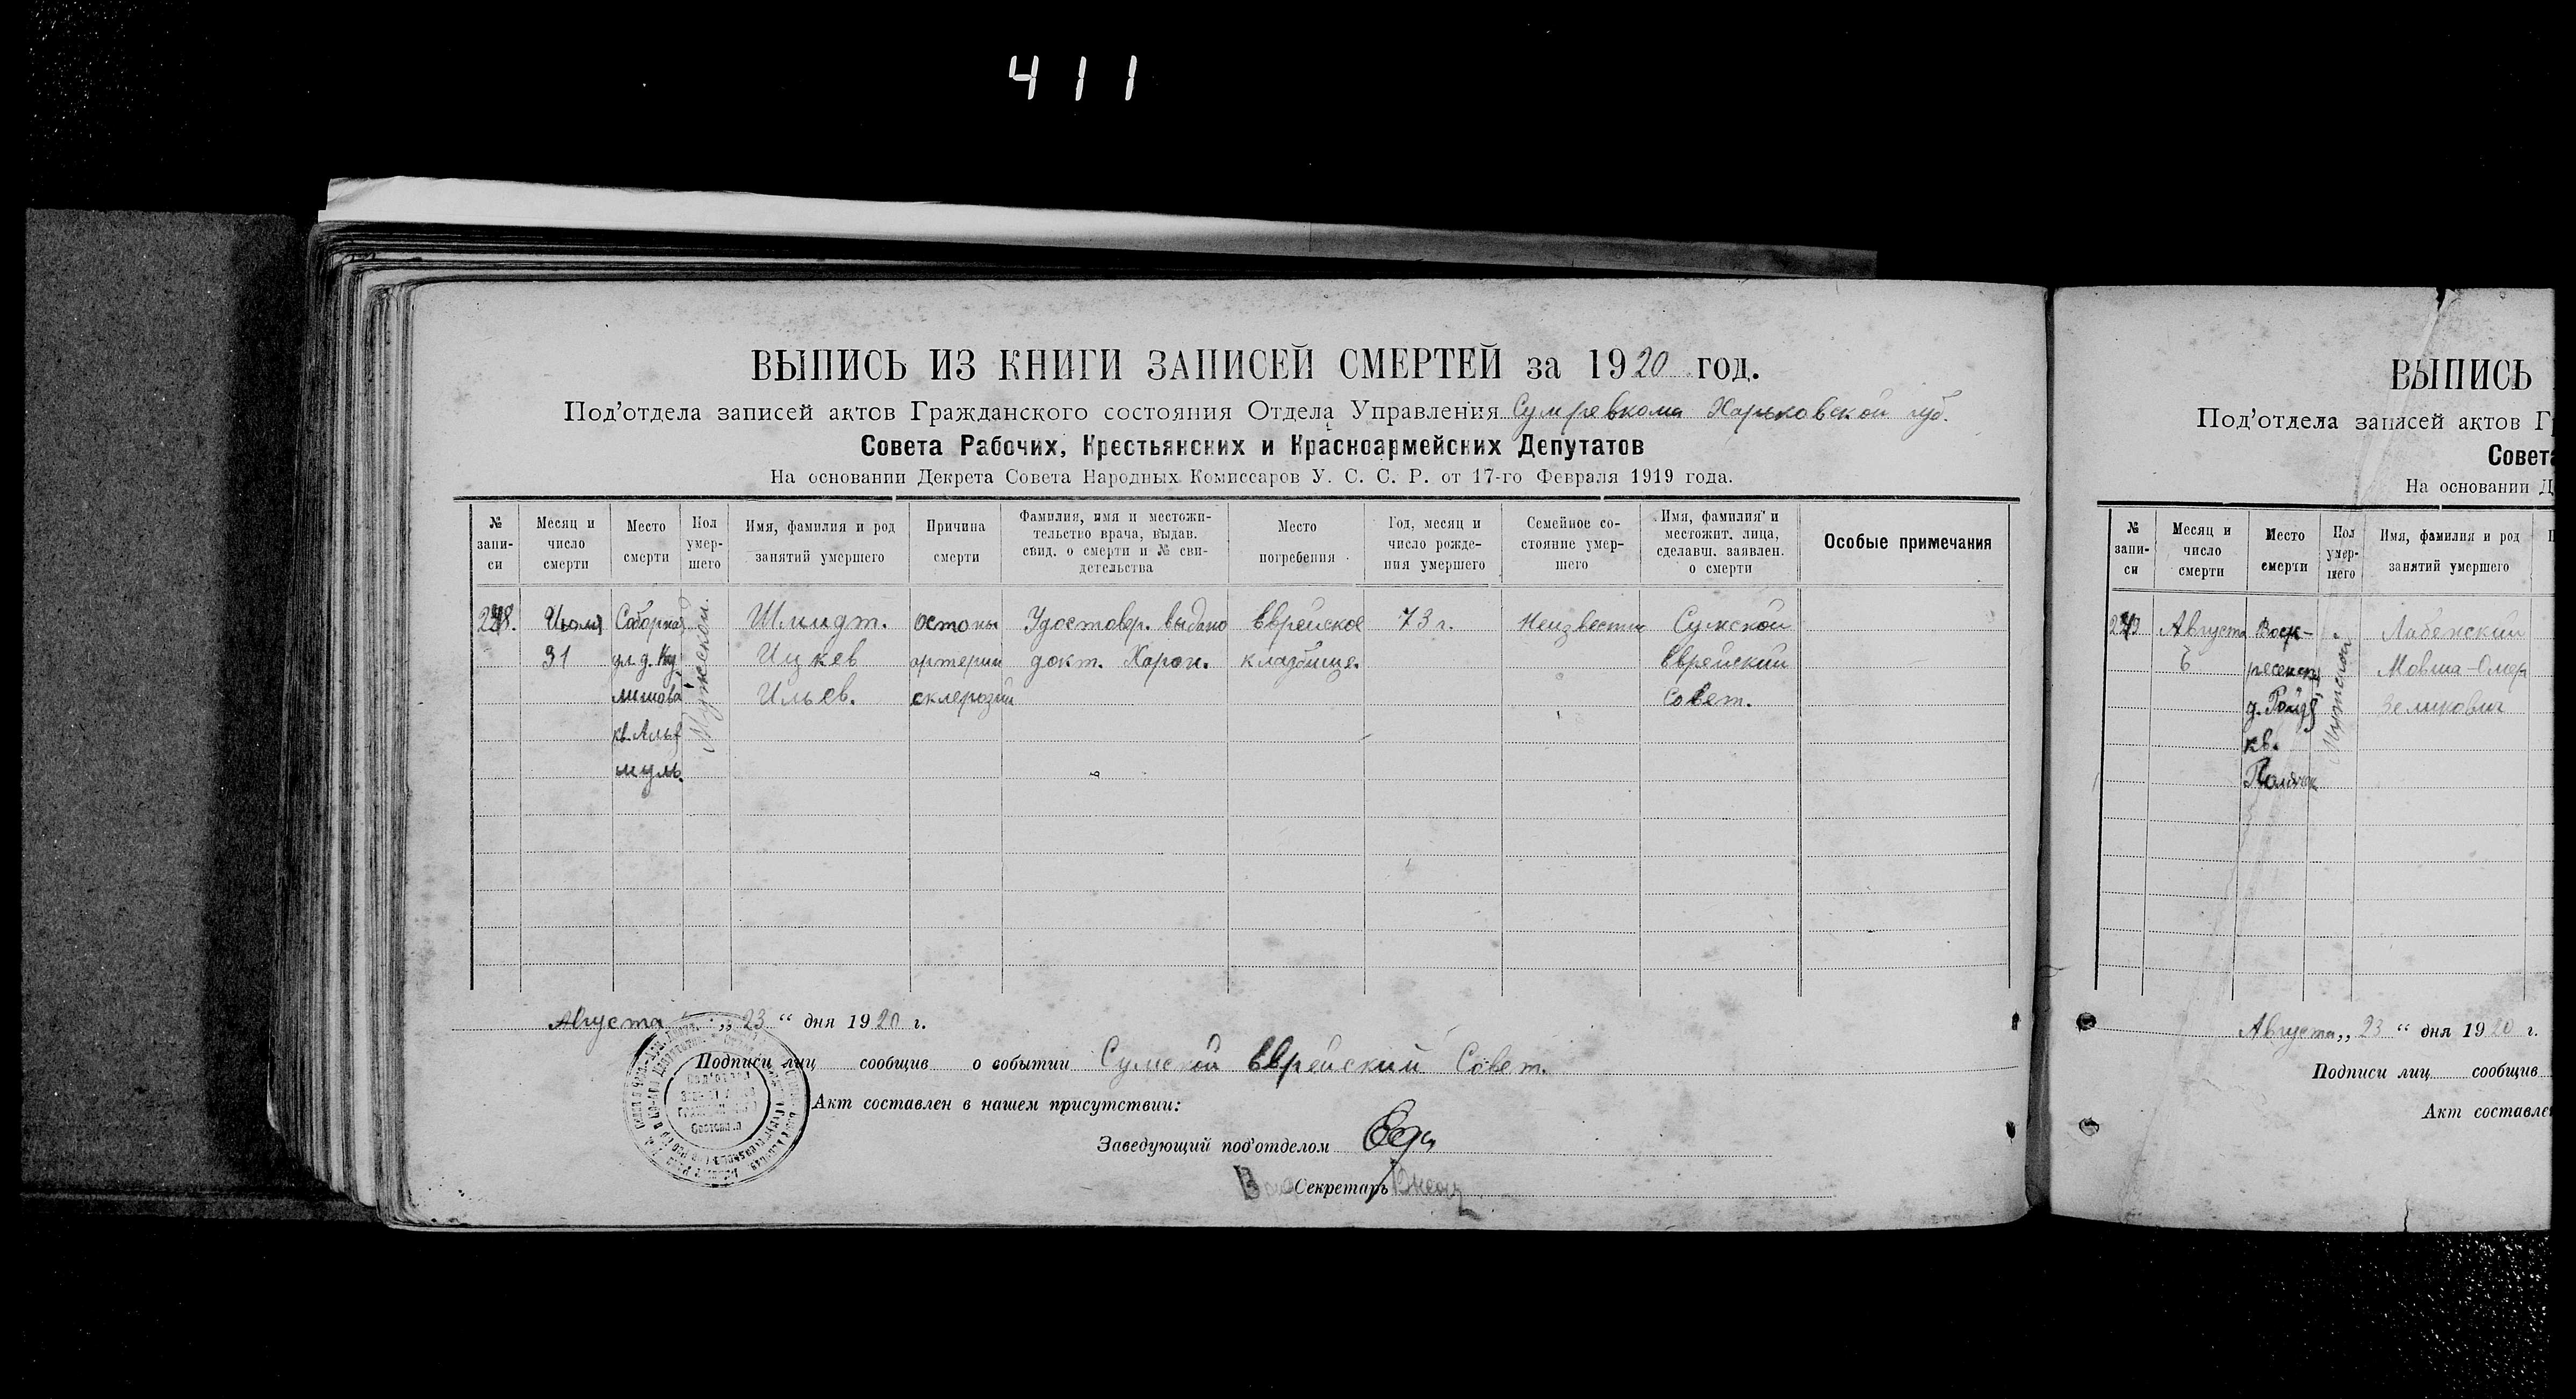 411
ВЫПИСЬ ИЗ КНИГИ ЗАПИСЕЙ СМЕРТЕЙ за 1920 год.
Под'отдела записей актов Гражданского состояния Отдела Управления Сумревкома Харьковской губ.
Совета Рабочих, Крестьянских и Красноармейских Депутатов
На основании Декрета Совета Народных Комиссаров У. С. С. Р. от 17-го Февраля 1919 года.
№ запи-
си
Месяц и
число
смерти
Место
смерти
Пол
умер-
шего
Имя, фамилия и род
занятий умершего
Причина
смерти
Фамилия, имя и местожи-
тельство врача, выдав.
свид. о смерти и № сви-
детельства
Место
погребения
Год, месяц и
число рожде-
ния умершего
Семейное со-
стояние умер-
шего
Имя, фамилия и
местожит. лица,
сделавш. заявлен.
о смерти
Особые примечания
Июля
31
Соборная
ул. д.
кв.
Мужской.
Шмидт.
Ицкев
Ильев.
артерии
Удостовер. выдано
докт. Харон.
Еврейское
кладбище.
73 г.
Неизвестно
Сумской
Еврейский
Совет.
Августа „ 23 “ дня 1920 г.
Подписи лиц сообщив о событии Сумской Еврейский Совет.
Акт составлен в нашем присутствии:
Заведующий под'отделом
Секретарь
ВЫПИСЬ
Под'отдела записей актов Г
Совета
На основании Д
№
запи-
си
Месяц и
число
смерти
Место
смерти
Пол
умер-
шего
Имя, фамилия и род
занятий умершего
Августа
6
Воск-
ресенск
д.
кв.
Мужской
Лабенский
Мовша-Омер
Зеликович
Августа „ 23 “ дня 1920 г.
Подписи лиц сообщив
Акт составле